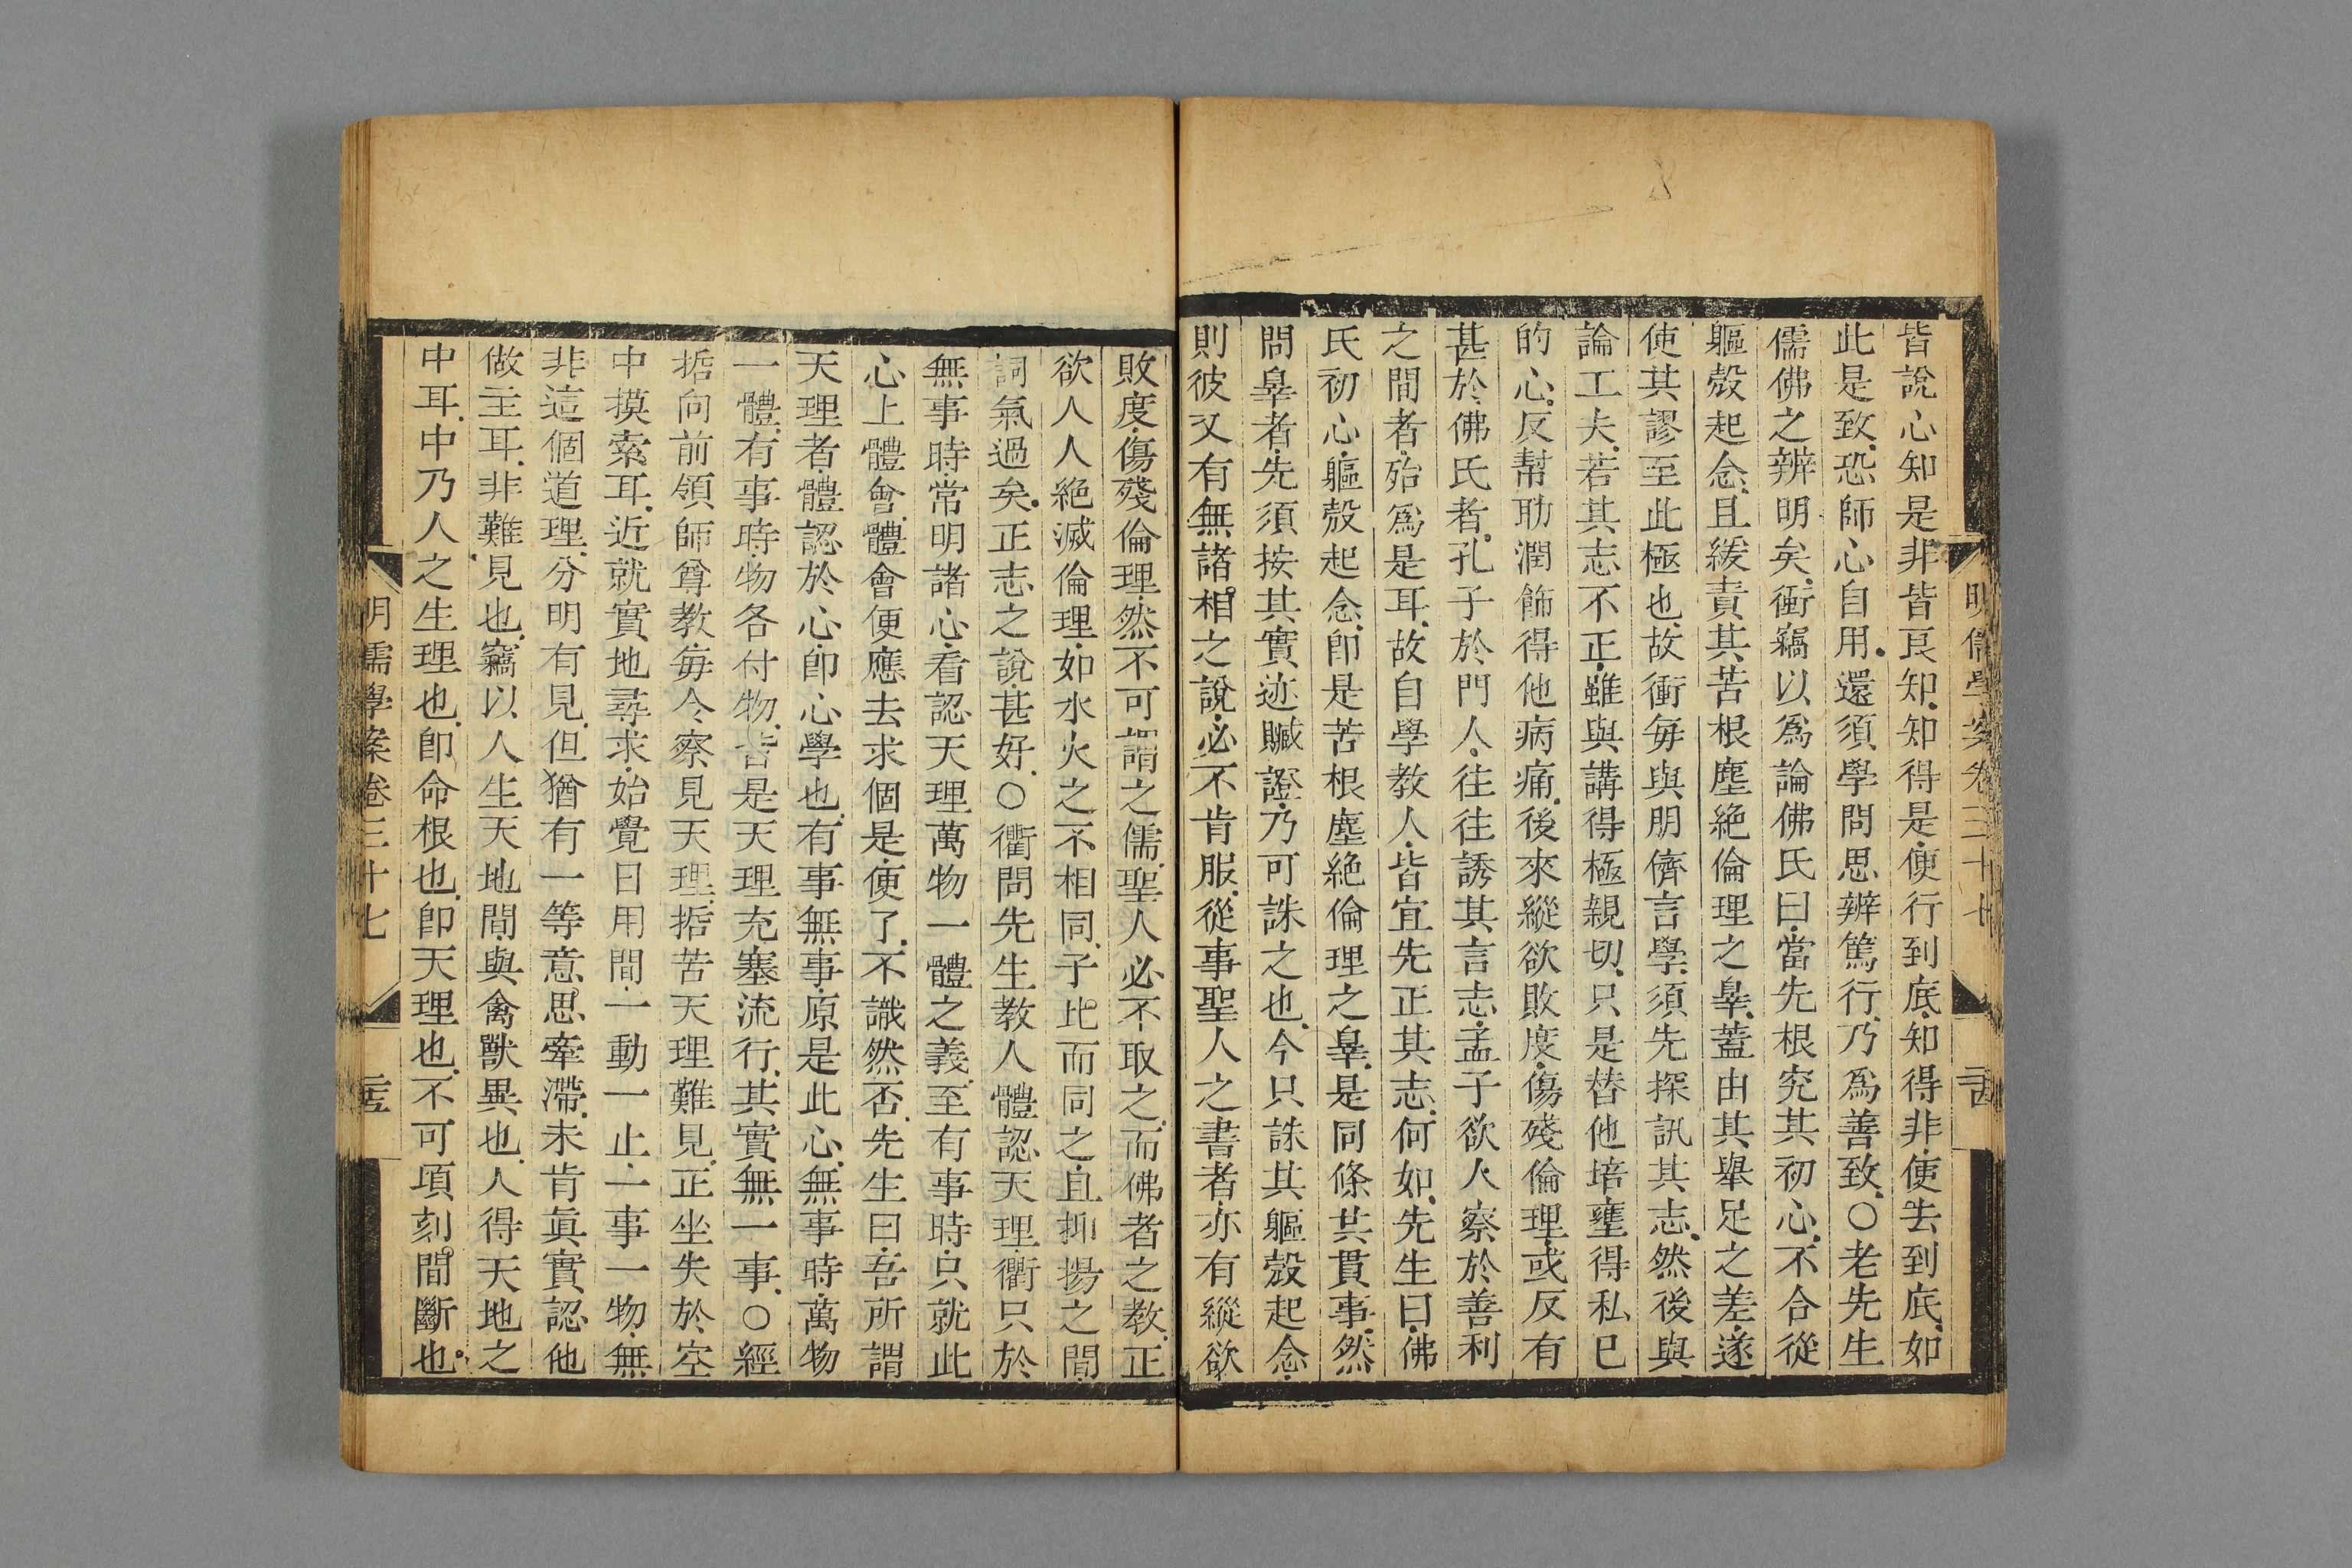 明儒學案卷三十七
皆說心知是非皆良知知得是便行到底知得非便去到底如
此是致恐師心自用還須學問思辨篤行乃爲善致○老先生
儒佛之辨明矣衝竊以爲論佛氏曰當先根究其初心不合從
軀殻起念且緩責其苦根塵絕倫理之辠蓋由其舉足之差遂
使其謬至此極也故衝每與朋儕言學須先探訊其志然後與
論工夫若其志不正雖與講得極親切只是替他培壅得私己
的心反幫助潤飾得他病痛後來縱欲敗度傷殘倫理或反有
甚於佛氏者孔子於門人往往誘其言志孟子欲人察於善利
之間者殆爲是耳故自學教人皆宜先正其志何如先生曰佛
氏初心軀殻起念卽是苦根塵絕倫理之辠是同條共貫事然
問辠者先須按其實迹贓證乃可誅之也今只誅其軀殻起念
則彼又有無諸相之說必不肯服從事聖人之書者亦有縱欲
敗度傷殘倫理然不可謂之儒聖人必不取之而佛者之教正
欲人人絕滅倫理如水火之不相同子比而同之且抑揚之間
詞氣過矣正志之說甚好○衢問先生教人體認天理衢只於
無事時常明諸心看認天理萬物一體之義至有事時只就此
心上體會體會便應去求個是便了不識然否先生曰吾所謂
天理者體認於心卽心學也有事無事原是此心無事時萬物
一體有事時物各付物皆是天理充塞流行其實無一事○經
哲向前領師尊教每令察見天理哲苦天理難見正坐失於空
中摸索耳近就實地尋求始覺日用間一動一止一事一物無
非這個道理分明有見但猶有一等意思牽滯未肯眞實認他
做主耳非難見也竊以人生天地間與禽獸異也人得天地之
中耳中乃人之生理也卽命根也卽天理也不可頃刻間斷也
明儒學案卷三十七